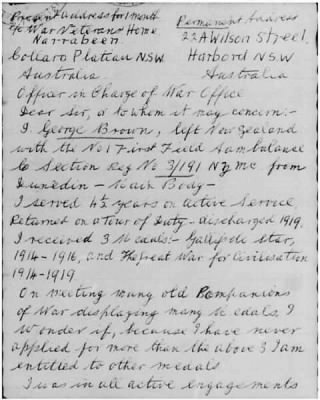 Present address for 1 month
c/o War Veterans Home
Narrabeen
Collaroy Plateau N.S.W.
Australia
Permanent Address
22A Wilson Street,
Harbord N.S.W
Australia
Officer in Charge of War Office
Dear Sir, or to whom it may concern:-
I. George Brown, left New Zealand
with the No 1 First Field Ambulance
C Section Reg No 3/191 NZMC from
Dunedin - Main Body -
I served 4½ years on active service
Returned on a tour of Duty - discharged 1919.
I received 3 Medals:- Gallipoli Star,
1914-1916, and The great War for Civilisation
1914-1919
On meeting many old Companions
of War displaying many Medals, I
wonder if, because I have never
applied for more than the above 3 I am
entitled to other medals
I was in all active engagements